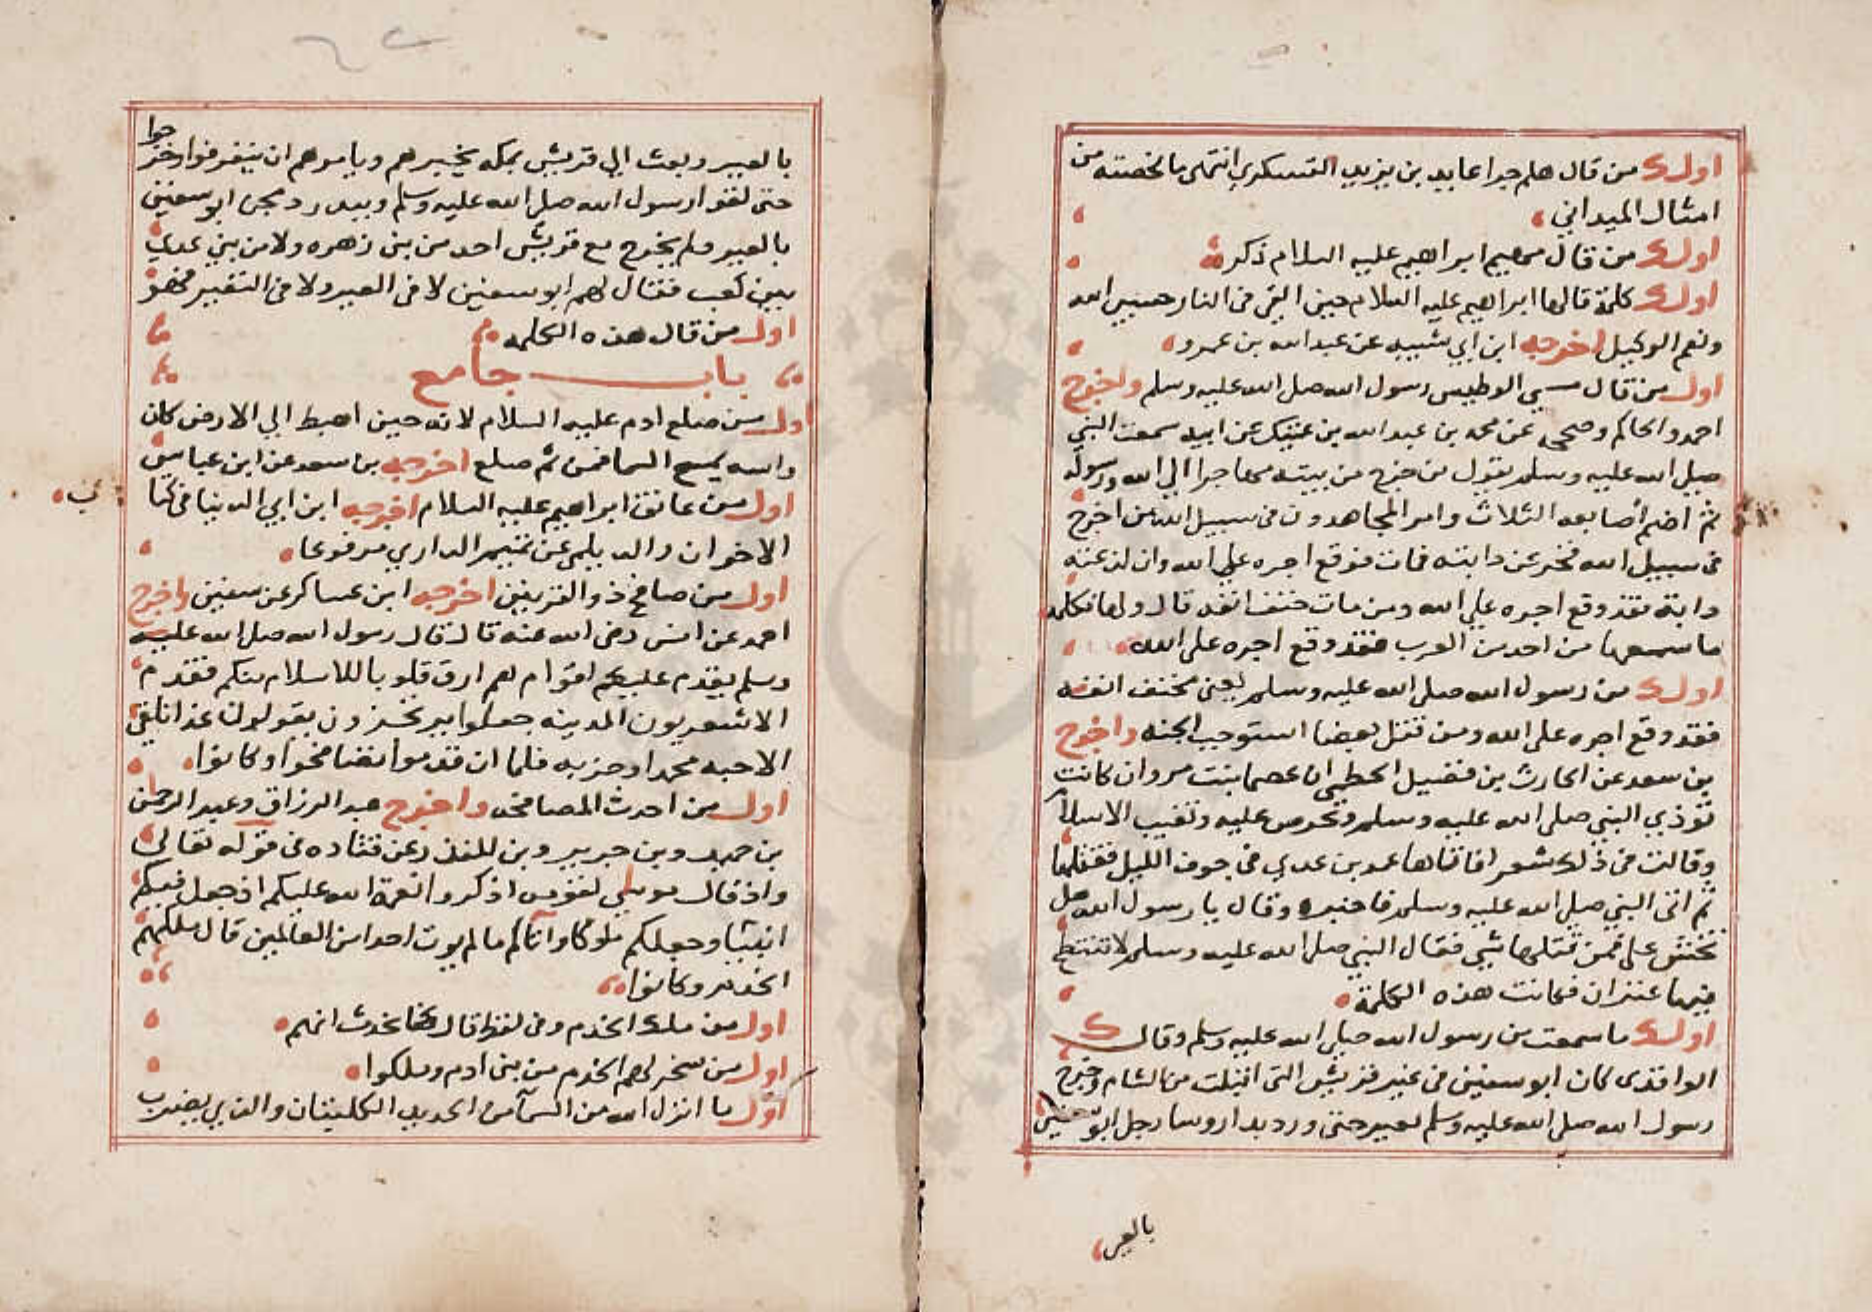 اول من قال هلم جرا عابد بن يزيد اليشكري انتهى ما لخصته من
امثال الميداني
اول من قال مهيم ابراهيم عليه السلام ذكره
اول كلمة قالها ابراهيم عليه السلام حين القي في النار حسبي الله
ونعم الوكيل اخرجه ابن ابي شيبه عن عبد الله بن عمرو
اول من قال حمي الوطيس رسول الله صلى الله عليه وسلم واخرج
احمد والحاكم وصححه عن محمد بن عبد الله بن عتيك عن ابيه سمعت النبي
صلى الله عليه وسلم يقول من خرج من بيته مهاجرا الى الله ورسوله
ثم اضم أصابعه الثلاث وامر المجاهدون في سبيل الله من اخرج
في سبيل الله فخر عن دابته فمات فوقع اجره على الله وان لدغته
دابة فقد وقع اجره على الله ومن مات حتف انفه قال ولها تكلمه
ما سمعها من احد من العرب فقد وقع اجره على الله
اول من رسول الله صلى الله عليه وسلم يعني حتف انفه
فقد وقع اجره على الله ومن قتل بعضا استوجب الجنه واخرج
بن سعد عن الحارث بن فضيل الخطمي ان عصما بنت مروان كانت
توذي النبي صلى الله عليه وسلم وتحرص عليه وتعيب الاسلام
وقالت في ذلك شعرا فاتاها عمد بن عدي في جوف الليل فقتلها
ثم اتى النبي صلى الله عليه وسلم فاخبره وقال يا رسول الله هل
تخش على فمن قتلها شي فقال النبي صلى الله عليه وسلم لا تنتطح
فيها عنزان فكانت هذه الكلمة
اول ما سمعت من رسول الله صلى الله عليه وسلم وقال
الواقدى كان ابو سفين في عير قريش التى اقبلت من الشام وخرج
رسول الله صلى الله عليه وسلم لعير حتى ورد بدرا وسار رجل ابو سفين
بالعير
بالعير وبعث الى قريش بمكه يخبرهم ويامرهم ان ينفروا فخرجوا
حتى لقوا رسول الله صلى الله عليه وسلم وبدر ورد مجى ابو سفين
بالعير ولم يخرج مع قريش احد من بنى زهره ولا من بني عدي
بين كعب فقال لهم ابو سفين لا في العير ولا في النفير فهو
اول من قال هذه الكلمه
باب جامع
اول من صلع ادم عليه السلام لانه حين اهبط الى الارض كان
راسه يمسح السما فمن ثم صلع اخرجه بن سعد عن ابن عباس
اول من عانق ابراهيم عليه السلام اخرجه ابن ابي الدنيا في كتا
ب
الاخوان والديلمى عن تميم الداري مرفوعا
اول من صافح ذو القرنين اخرجه ابن عساكر عن سفين واخرج
احمد عن انس رضى الله عنه قال قال رسول الله صلى الله عليه
وسلم يقدم عليكم اقوام لهم ارق قلوبا للاسلام منكم فقدم
الاشعريون المدينه جعلوا يرتجزون يقولون غدا نلقى
الاحبه محمدا وحزبه فلما ان قدموا تصافحوا وكانوا
اول من احدث المصافحه واخرج عبد الرزاق وعبد الرحمن
بن حميد وبن جرير وبن المنذر عن قتاده في قوله تعالى
واذ قال موسى لقومه اذكروا نعمة الله عليكم اذ جعل فيكم
انبيا وجعلكم ملوكا واتاكم ما لم يوت احدا من العالمين قال ملكهم
الخدم وكانوا
اول من ملك الخدم وفي لفظ قال كنا نحدث انهم
اول من سخر لهم الخدم من بنى ادم وملكوا
اول ما انزل الله من السماء من الحديد الكلبتان والذي يضرب